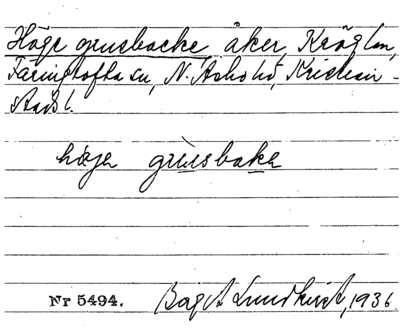 Höge grusbacke åker, Kräglan,
Färingtofta sn, N. Åsbo hd, Kristian-
stads l.
höga grusbaka
Nr 5494. Bengt Lundkvist, 1936